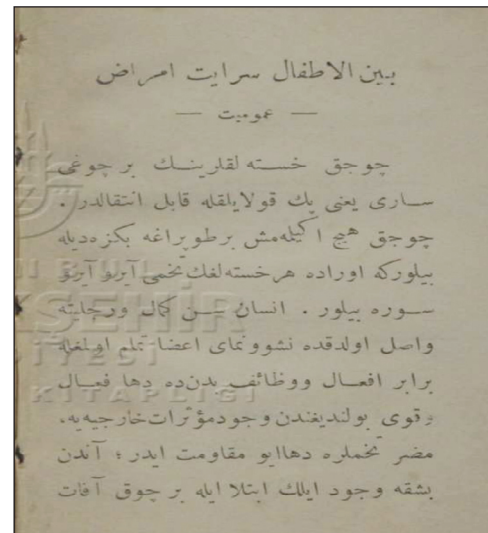 بين الاطفال سرايت امراض
— عموميت —
چوجق خسته لقلرينك بر چوغى
سارى يعنى پك قولايلقله قابل انتقالدر .
چوجق هيچ اكيله‌مش بر طوپراغه بكزه‌ديله
بيلوركه اوراده هر خسته‌لغك تخمى آيرو آيرو
سوره بيلور . انسان سن كمال ورجليته
واصل اولدقده نشوونماى اعضا تمام اولمغله
برابر افعال ووظائف بدن‌ده دها فعال
وقوى بولنديغندن وجود مؤثرات خارجيه‌يه،
مضر تخملره دها ايو مقاومت ايدر ؛ آندن
بشقه وجود ايلك ابتلا ايله بر چوق آفات
KİTAPLIĞI